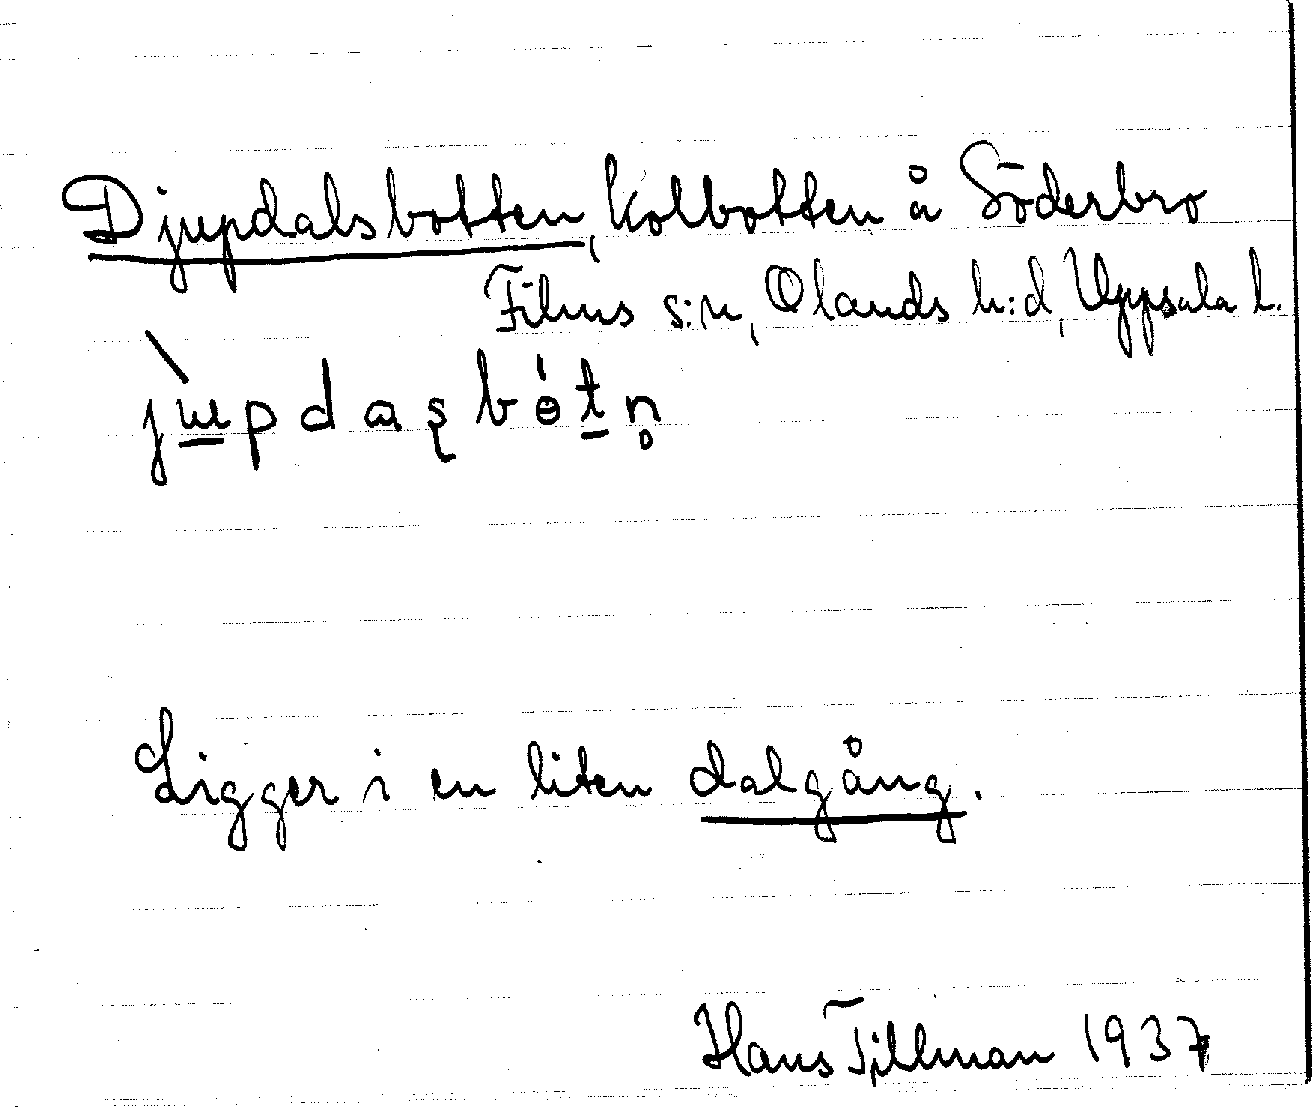 Djupdalsbotten, kolbotten å Söderbro
Films s:n, Olands h:d, Uppsala l.
Ligger i en liten dalgång.
Hans Tillman 1937